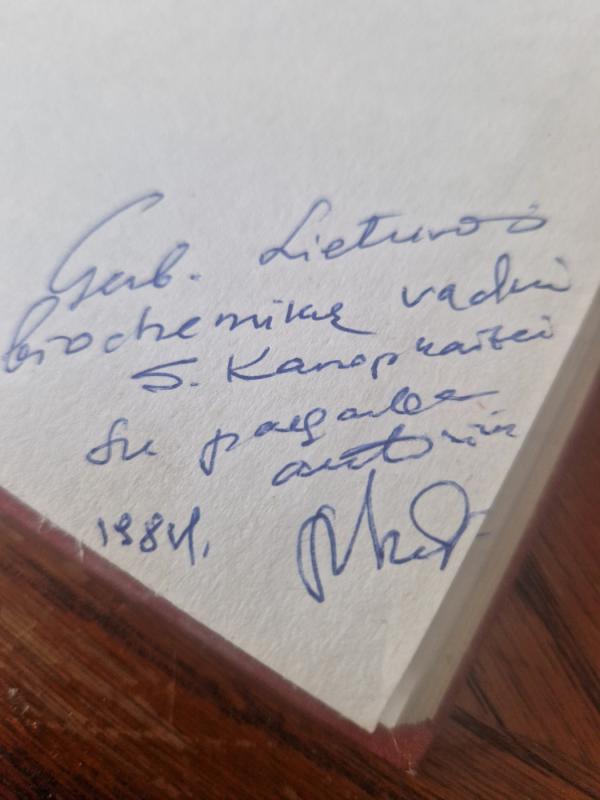 Gerb. Lietuvos
biochemikų vadui
S. Kanopkaitei
Su pagarba
autorius
1984.